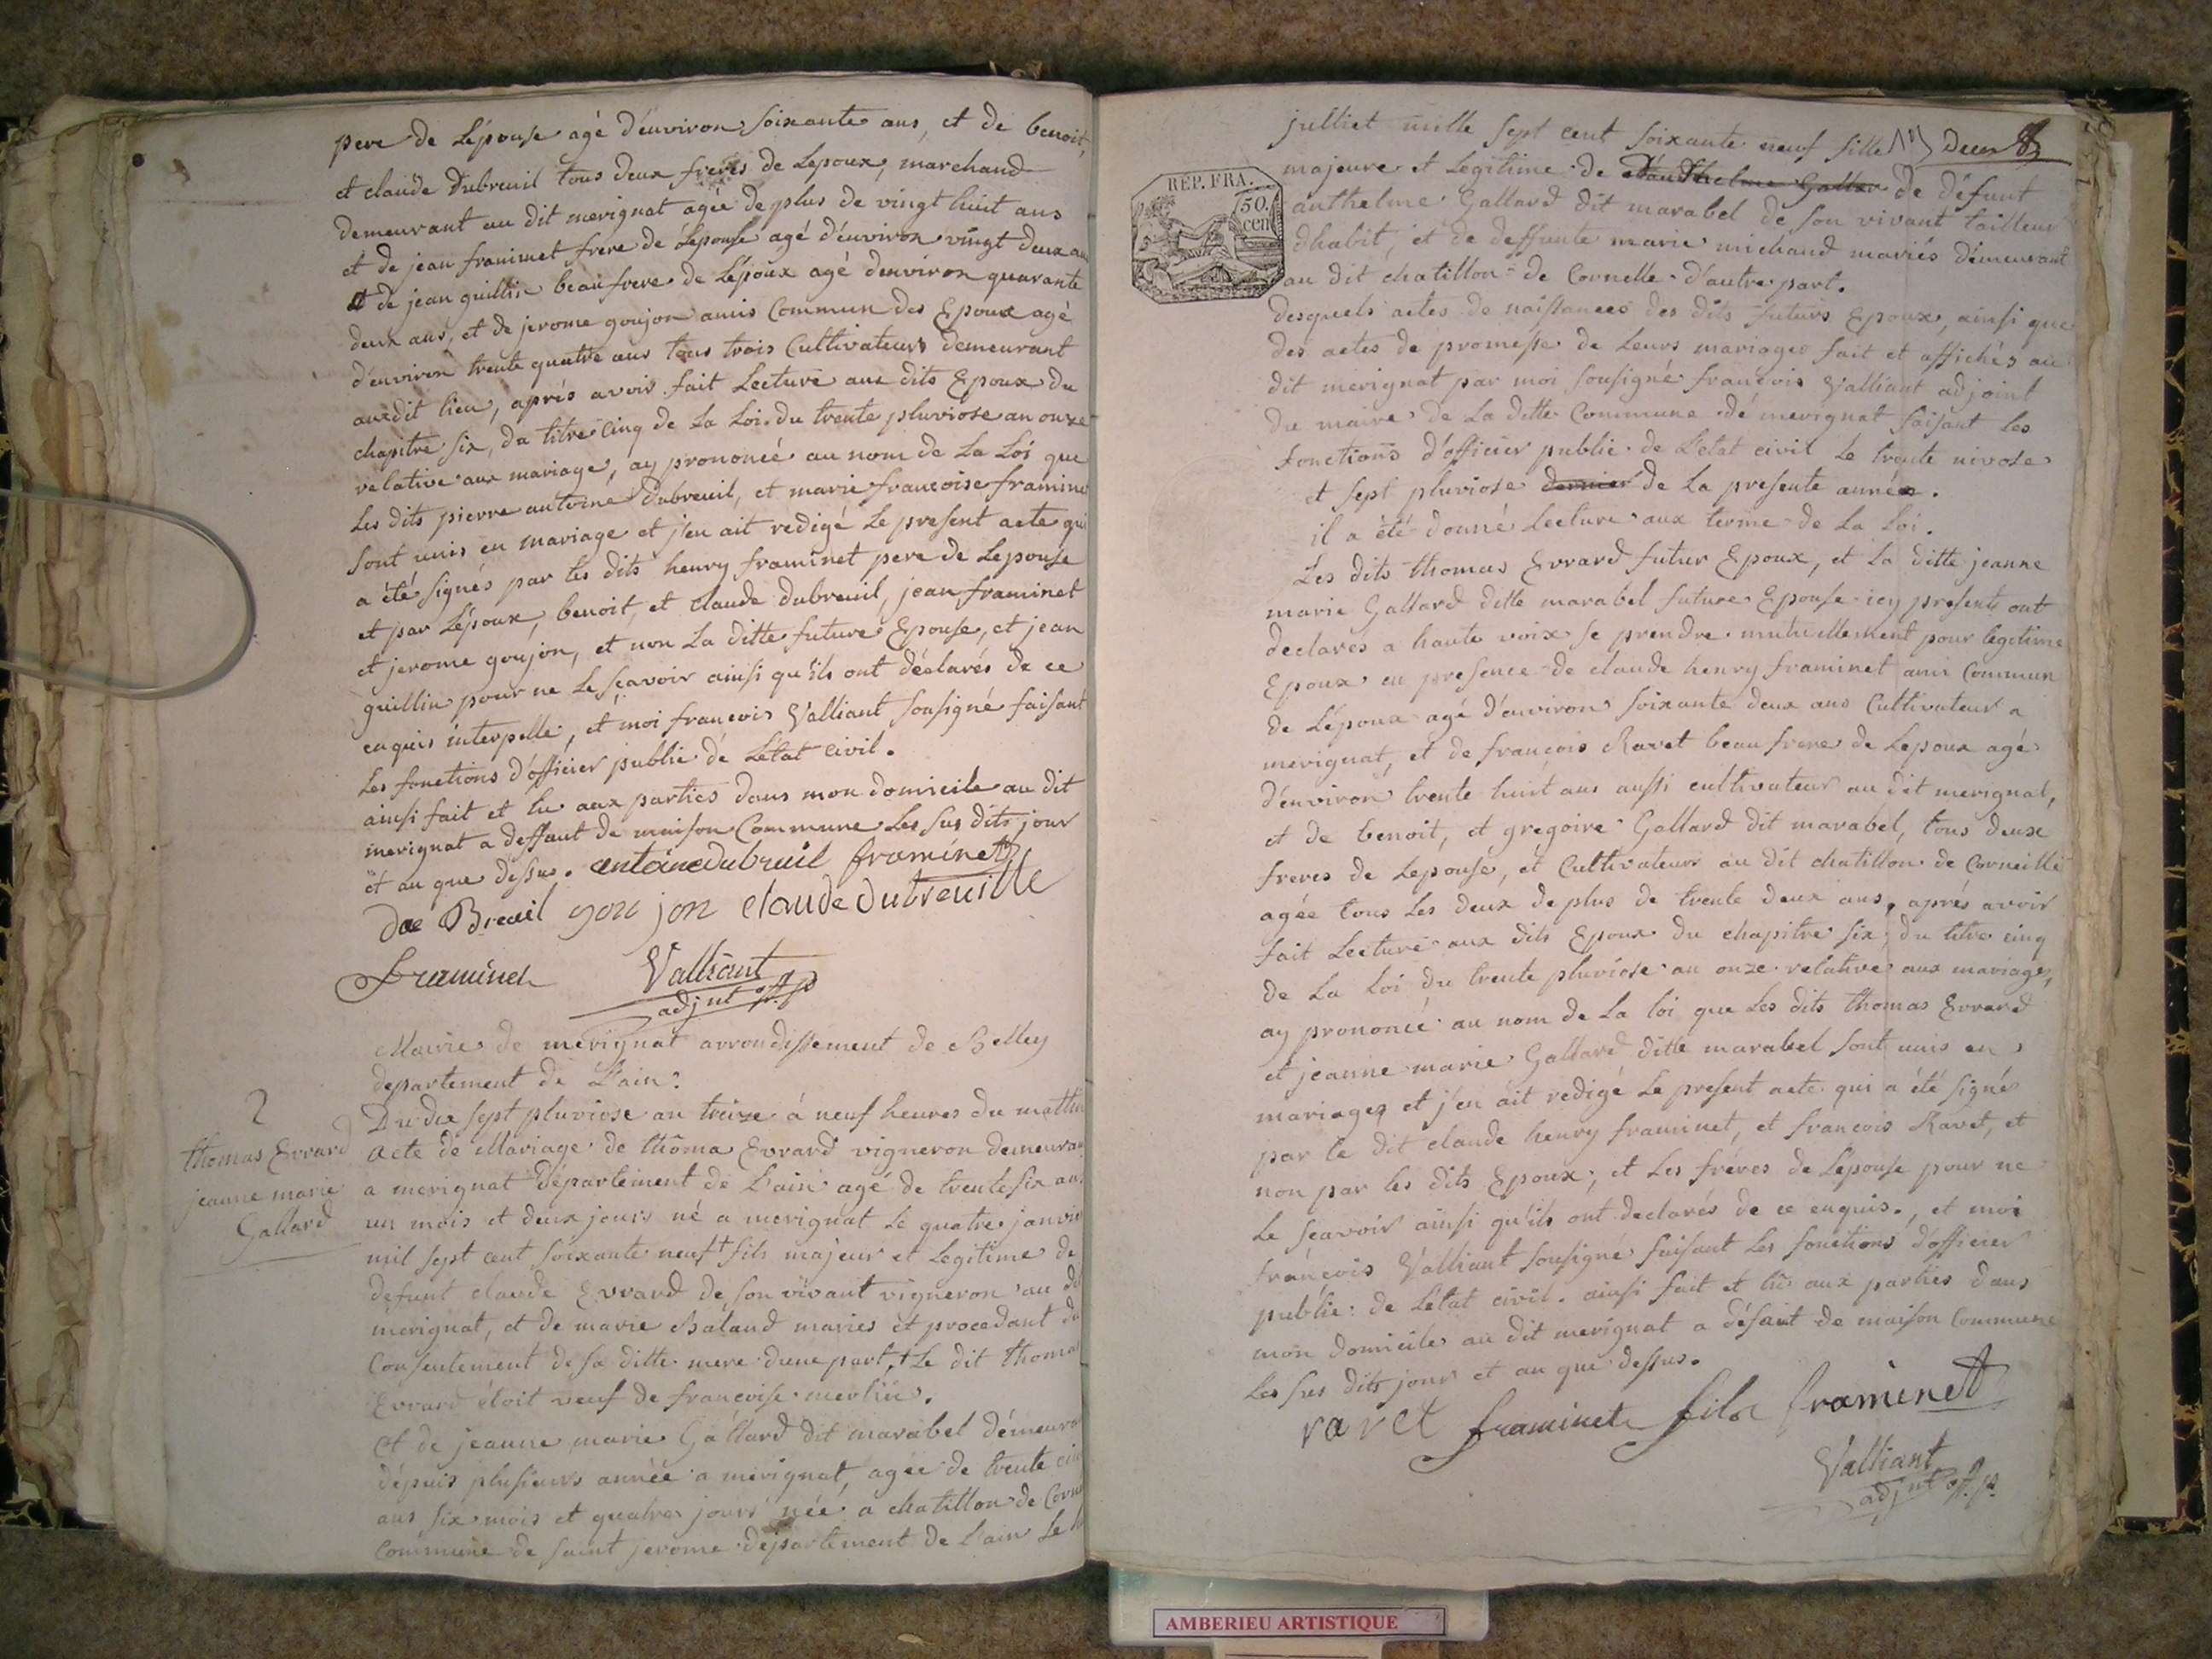 pere de Lépouse agé d'environ soixante ans, et de benoit,
et claude Dubreuil tous deux freres de Lepoux, marchand
demeurant au dit merignat agée de plus de vingt huit ans
et de jean framinet frere de Lepouse agé d'environ vingt deux ans
et de jean guillin beaufrere de Lépoux agé denviron quarante
deux ans, et de jerome goujon amis Commun des Epoux agé
d'environ trente quatre ans tous trois Cultivateurs demeurant
audit lieu, aprés avoir fait Lecture aux dits Epoux du
chapitre six, du titre cinq de La Loi du trente pluviose an onze
relative aux mariage, ay prononcé au nom de La Loi que
Les dits pierre antoine Dubreuil, et marie francoise framinet
sont unis en mariage et j'en ait redigé Le present acte qui
a été signés par les dits henry framinet pere de Lepouse
et par Lépoux, benoit, et claude Dubreuil, jean framinet
et jerome goujon, et non La ditte future Epouse, et jean
guillin pour ne Le sçavoir ainsi qu'ils ont déclarés de ce
enquis interpellé, et moi françois Valliant sousigné faisant
Les fonctions d'officier public de Létat civil.
ainsi fait et lu aux parties dans mon domicile au dit
merignat a deffaut de maison Commune Les sus dits jour
et an que dessus. antoine dubreuil framinet
Du Breuil gou jon claude dubreuille
framinet Valliant
adjnt off. p
Mairie de merignat arrondissement de Belley
departement de L'ain.
2
thomas Evrard
jeanne marie
Gallard
Du dix sept pluviose an treize à neuf heures du mattin
Acte de Mariage de thôma Evrard vigneron demeurant
a merignat département de L'ain agé de trente six ans
un mois et deux jours né a merignat Le quatre janvier
mil sept cent soixante neuf + fils majeur et Legitime de
defunt claude Evrard de son vivant vigneron au dit
merignat, et de marie Balaud mariés et procedant du
Consentement de sa ditte mere d'une part, + Le dit thomas
Evrard étoit veuf de françoise merlin.
Et de jeanne marie Gallard dit marabel démeurant
dépuis plusieurs année a merignat, agée de trente cinq
ans six mois et quatre jours née a chatillon de Corn
Commune de saint jerome département de L'ain Le
REP. FRA.
50.
cen
julliet mille sept cent soixante neuf fille deux
majeure et Legitime de d'anthelme Gallar de défunt
anthelme Gallard dit marabel de son vivant tailleur
dhabit, et de deffunte marie michaud mariés démeurant
au dit chatillon de Cornelle d'autre part.
desquels actes de naissances des dits futurs Epoux, ainsi que
des actes de promesse de Leurs mariages fait et affichés au
dit merignat par moi sousigné françois Valliant adjoint
du maire de La ditte Commune dé merignat faisant Les
fonctions d'officier public de L'etat civil Le trente nivose
et sept pluviose dernier de La presente année.
il a été donné Lecture aux terme de La Loi.
Les dits thomas Evrard futur Epoux, et La ditte jeanne
marie Gallard ditte marabel future Epouse icy presents ont
declarés a haute voix se prendre mutuellement pour legitime
Epoux en presence de claude henry framinet ami Commun
de Lépoux agé d'environ soixante deux ans Cultivateur a
merignat, et de françois Ravet beaufrere de Lepoux agé
d'environ trente huit ans aussi cultivateur au dit merignat,
et de benoit, et gregoire Gallard dit marabel, tous deux
freres de Lepouse, et Cultivateurs au dit chatillon de Corneille
agée tous Les deux de plus de trente deux ans, aprés avoir
fait Lecture aux dits Epoux du chapitre six, du titre cinq
de La Loi du trente pluviose an onze relative aux mariages,
ay prononcé au nom de La loi que Les dits thomas Evrard
et jeanne marie Gallard ditte marabel sont unis en
mariages et j'en ait redigé Le present acte qui a été signé
par le dit claude henry framinet, et francois Ravet, et
non par les dits Epoux, et Les fréres de Lépouse pour ne
Le sçavoir ainsi qu'ils ont declarés de ce enquis., et moi
françois Valliant sousigné faisant Les fonctions d'officier
public de Létat civil. ainsi fait et lus aux parties dans
mon domicile au dit merignat a défaut de maison Commune
Les sus dits jour et an que dessus.
ravet framinet fils framinet
Valliant
adjnt off. p.
AMBERIEU ARTISTIQUE